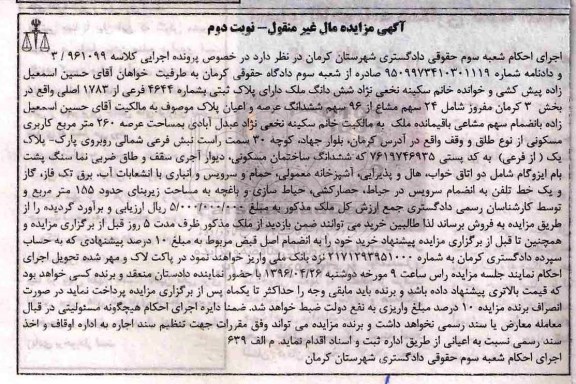 آگهی مزایده مال غیر منقول- نوبت دوم
اجرای احکام شعبه سوم حقوقی دادگستری شهرستان کرمان در نظر دارد در خصوص پرونده اجرایی کلاسه ۹۶۱۰۹۹ / ۳
و دادنامه شماره ۹۵۰۹۹۷۳۴۱۰۳۰۱۱۱۹ صادره از شعبه سوم دادگاه حقوقی کرمان به طرفیت خواهان آقای حسین اسمعیل
زاده پیش کشی و خوانده خانم سکینه نخعی نژاد شش دانگ ملک دارای پلاک ثبتی بشماره ۴۶۴۴ فرعی از ۱۷۸۳ اصلی واقع در
بخش ۳ کرمان مفروز شامل ۲۴ سهم مشاع از ۹۶ سهم ششدانگ عرصه و اعیان پلاک موصوف به مالکیت آقای حسین اسمعیل
زاده بانضمام سهم مشاعی باقیمانده ملک به مالکیت خانم سکینه نخعی نژاد عبدل آبادی بمساحت عرصه ۲۶۰ متر مربع کاربری
مسکونی از نوع طلق و وقف واقع در آدرس کرمان، بلوار جهاد، کوچه ۳۰ سمت راست نبش فرعی شمالی روبروی پارک- پلاک
یک (از فرعی) به کد پستی ۷۶۱۹۷۴۶۹۳۵ که ششدانگ ساختمان مسکونی، دیوار آجری سقف و طاق ضربی نما سنگ پشت
بام ایزوگام شامل دو اتاق خواب، هال و پذیرایی، آشپزخانه معمولی، حمام و سرویس و انباری با انشعابات آب، برق تک فاز، گاز
و یک خط تلفن به انضمام سرویس در حیاط، حصارکشی، حیاط سازی و باغچه به مساحت زیربنای حدود ۱۵۵ متر مربع و
توسط کارشناسان رسمی دادگستری جمع ارزش کل ملک مذکور به مبلغ ۵/۰۰۰/۰۰۰/۰۰۰ ریال ارزیابی و برآورد گردیده را از
طریق مزایده به فروش برساند لذا طالبین خرید می توانند ضمن بازدید از ملک مذکور ظرف مدت ۵ روز قبل از برگزاری مزایده و
همچنین تا قبل از برگزاری مزایده پیشنهاد خرید خود را به انضمام اصل قبض مربوط به مبلغ ۱۰ درصد پیشنهادی که به حساب
سپرده دادگستری کرمان به شماره ۲۱۷۱۲۹۳۹۵۱۰۰۰ نزد بانک ملی واریز خواهند نمود در پاکت لاک و مهر شده تحویل اجرای
احکام نمایند جلسه مزایده راس ساعت ۹ مورخه دوشنبه ۱۳۹۶/۰۴/۲۶ با حضور نماینده دادستان منعقد و برنده کسی خواهد بود
که قیمت بالاتری پیشنهاد داده باشد و برنده باید مابقی وجه را حداکثر تا یکماه پس از برگزاری مزایده پرداخت نماید در صورت
انصراف برنده مزایده ۱۰ درصد مبلغ واریزی به نفع دولت ضبط خواهد شد. ضمنا دایره اجرای احکام هیچگونه مسئولیتی در قبال
معامله معارض یا سند رسمی نخواهد داشت و برنده مزایده می تواند وفق مقررات جهت تنظیم سند اجاره به اداره اوقاف و اخذ
سند رسمی نسبت به اعیانی از طریق اداره ثبت و اسناد اقدام نماید. م الف ۶۳۹
اجرای احکام شعبه سوم حقوقی دادگستری شهرستان کرمان